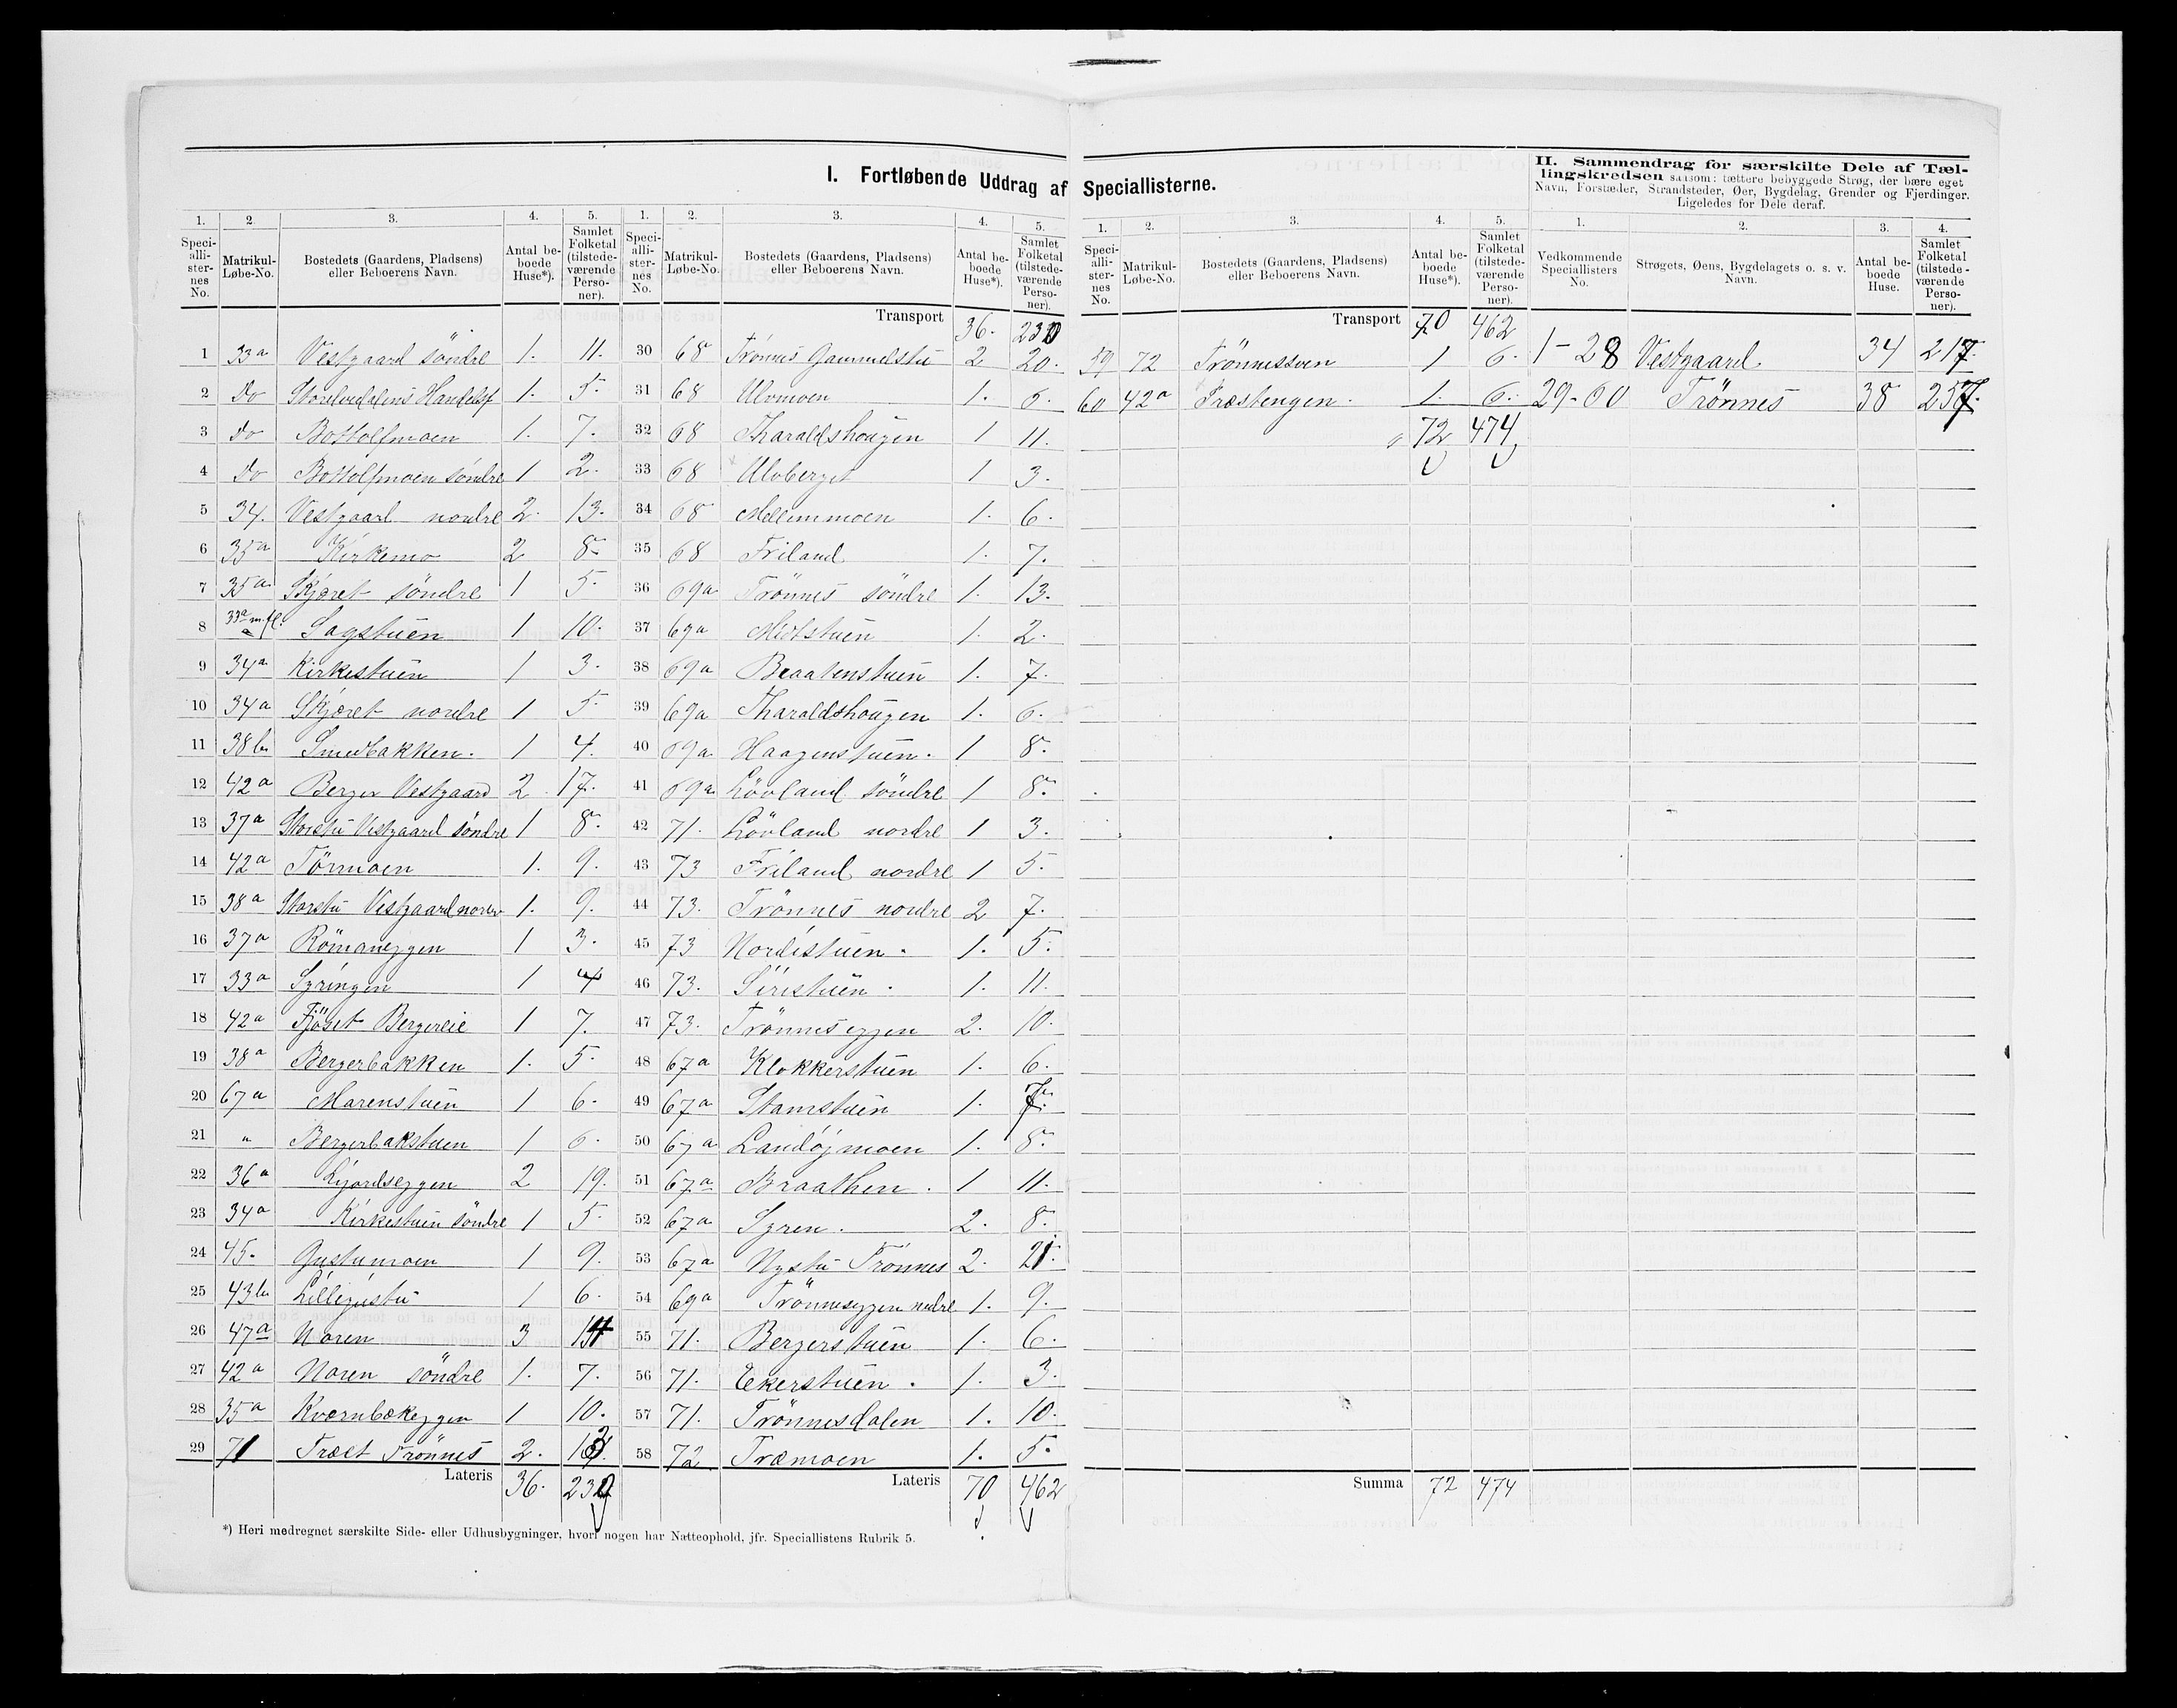 I. Fortløbende Uddrag af Speciallisterne.
II. Sammendrag for særskilte Dele af Tæl-
lingskredsen saasom: tættere bebyggede Strøg, der bære eget
Navn, Forstæder, Strandsteder, Øer, Bygdelag, Grender og Fjerdinger.
Ligeledes for Dele deraf.
1. 2. 3. 4. 5.
Speci-alli-ster-nes No. Matrikul-Løbe-No. Bostedets (Gaardens, Pladsens) eller Beboerens Navn. Antal be-boede Huse*). Samlet Folketal (tilstede-værende Perso-ner).
1 33a Vestgaard söndre 1. 11.
2 Do Storlvedalens Handelsf 1. 5.
3 Do Bottolfmoen 1. 7.
4 Do Bottolfmoen söndre 1 2.
5 34. Vestgaard nordre 2. 13.
6 35a Kirkemo 2 8
7 35a Skjæret söndre 1 5.
8 33a m.fl. Sagstuen 1 10.
9 34a Kirkestuen 1 3.
10 34a Skjæret nordre 1 5
11 38b Smedbakken. 1 4.
12 42a Berger Vestgaard 2 17.
13 37a Storstu Vestgaard söndre 1 8.
14 42a Törmoen 1. 9.
15 38a Storstu Vestgaard nordr 1. 9.
16 37a Römaneggen 1 3.
17 33a Syringen 1 4
18 42a Fjöset Bergereie 1 7.
19 38a Bergerbakken 1. 5.
20 67a Marenstuen 1 6.
21 " Bergerbakstuen 1 6.
22 36a Kjordseggen 2 19.
23 34a Kirkestuen söndre 1 5.
24 45. Gustumoen 1 9.
25 43b Lillegustu 1 6.
26 47a Noren 3 14
27 42a Noren söndre 1. 7.
28 35a Kvernbækeggen 1 10.
29 71 Træet Trönnes 2. 13
Lateris 36. 230
1. 2. 3. 4. 5.
Speci-alli-ster-nes No. Matrikul-Løbe-No. Bostedets (Gaardens, Pladsens) eller Beboerens Navn. Antal be-boede Huse*). Samlet Folketal (tilstede-værende Perso-ner).
Transport 36. 230
30 68 Trönnes Gammelstu 2 20.
31 68 Ulvmoen 1. 5.
32 68 Tharaldshougen 1 11.
33 68 Ulvberget 1 3.
34 68 Mellemmoen 1. 6.
35 68 Friland 1. 7.
36 69a Trönnes söndre 1. 13.
37 69a Midtstuen 1. 2.
38 69a Braatenstuen 1. 7.
39 69a Tharaldshougen 1. 6.
40 69a Haagenstuen. 1 8.
41 69a Lövland söndre 1 8.
42 71. Lövland nordre 1 3.
43 73 Friland nordre 1 5.
44 73. Trönnes nordre 2 7.
45 73 Nordistuen. 1. 5.
46 73. Söristuen. 1. 11.
47 73. Trönneseggen 2. 10.
48 67a Klokkerstuen 1. 6.
49 67a Stamstuen 1. 7.
50 67a Landöjmoen 1. 8.
51 67a Braathen. 1 11.
52 67a Syren. 2. 8.
53 67a Nystu Trönnes 2. 21.
54 69a Trönneseggen nedre 1. 9.
55 71. Bergerstuen 1. 6.
56 71. Ekerstuen. 1. 3.
57 71. Trönnesdalen 1. 10.
58 72 Træmoen 1. 5.
Lateris 70 462
1. 2. 3. 4. 5.
Speci-alli-ster-nes No. Matrikul-Løbe-No. Bostedets (Gaardens, Pladsens) eller Beboerens Navn. Antal be-boede Huse*). Samlet Folketal (tilstede-værende Perso-ner).
Transport 70 462
59 72 Trönnessven 1 6.
60 42a Præstengen. 1. 6.
72 474
Summa 72 474
1. 2. 3. 4.
Vedkommende Speciallisters No. Strøgets, Øens, Bygdelagets o. s. v. Navn. Antal be-boede Huse. Samlet Folketal (tilstede-værende Perso-ner).
1-28 Vestgaard 34 217
29-60 Trönnes 38 257.
*) Heri medregnet særskilte Side- eller Udhusbygninger, hvori nogen har Natteophold, jfr. Speciallistens Rubrik 5.